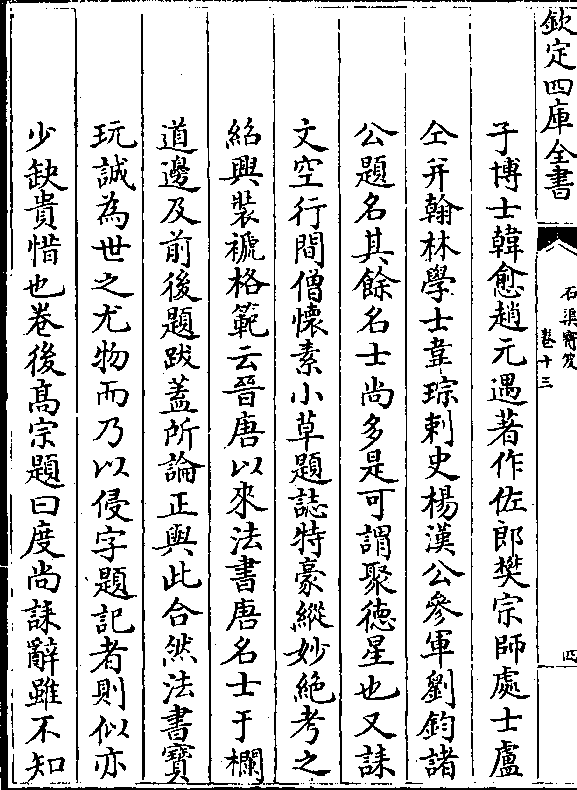 欽定四庫全書
石渠寳笈
卷十三
四
子博士韓愈趙元遇著作佐郎樊宗師處士盧
仝并翰林學士韋琮刺史楊漢公參軍劉鈞諸
公題名其餘名士尚多是可謂聚徳星也又誄
文空行間僧懷素小草題誌特豪縱妙絶考之
紹興裝禠格範云晉唐以來法書唐名士于欄
道邊及前後題跋蓋所論正與此合然法書寶
玩誠為世之尤物而乃以侵字題記者則似亦
少缺貴惜也卷後髙宗題曰度尚誄辭雖不知